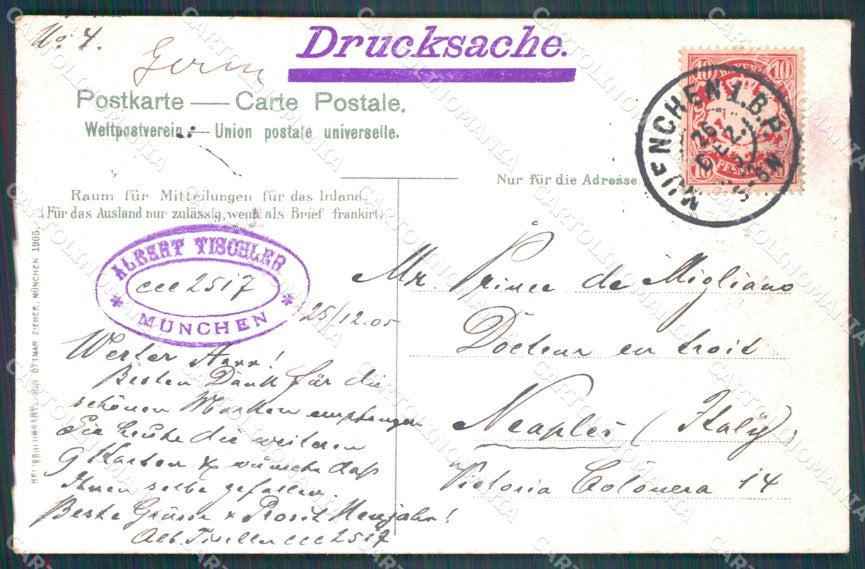 No. 4.
Germ
Drucksache.
Postkarte — Carte Postale.
Weltpostverein. — Union postale universelle.
Nur für die Adresse.
Raum für Mitteilungen für das Inland.
(Für das Ausland nur zulässig, wenn als Brief frankirt)
10 10
MUENCHEN 1. B.P.
26
DEZ
ALBERT TISCHLER
ccc 2517
* MÜNCHEN *
OTTMAR ZIEHER, MÜNCHEN 1905.
25/12.05
Mr. Prince de Migliano
Docteur en troit
Neaples (Italÿ)
Victoria Colonera 14
Werter Herr!
Besten Dank für die
schönen Marken empfangen
Sie heute die weiteren
9 Karten & wünsche daß
Ihnen selbe gefallen.
Beste Grüsse & Prosit Neujahr!
Alb. Tischler ccc 2517
CARTOLINOMANIA